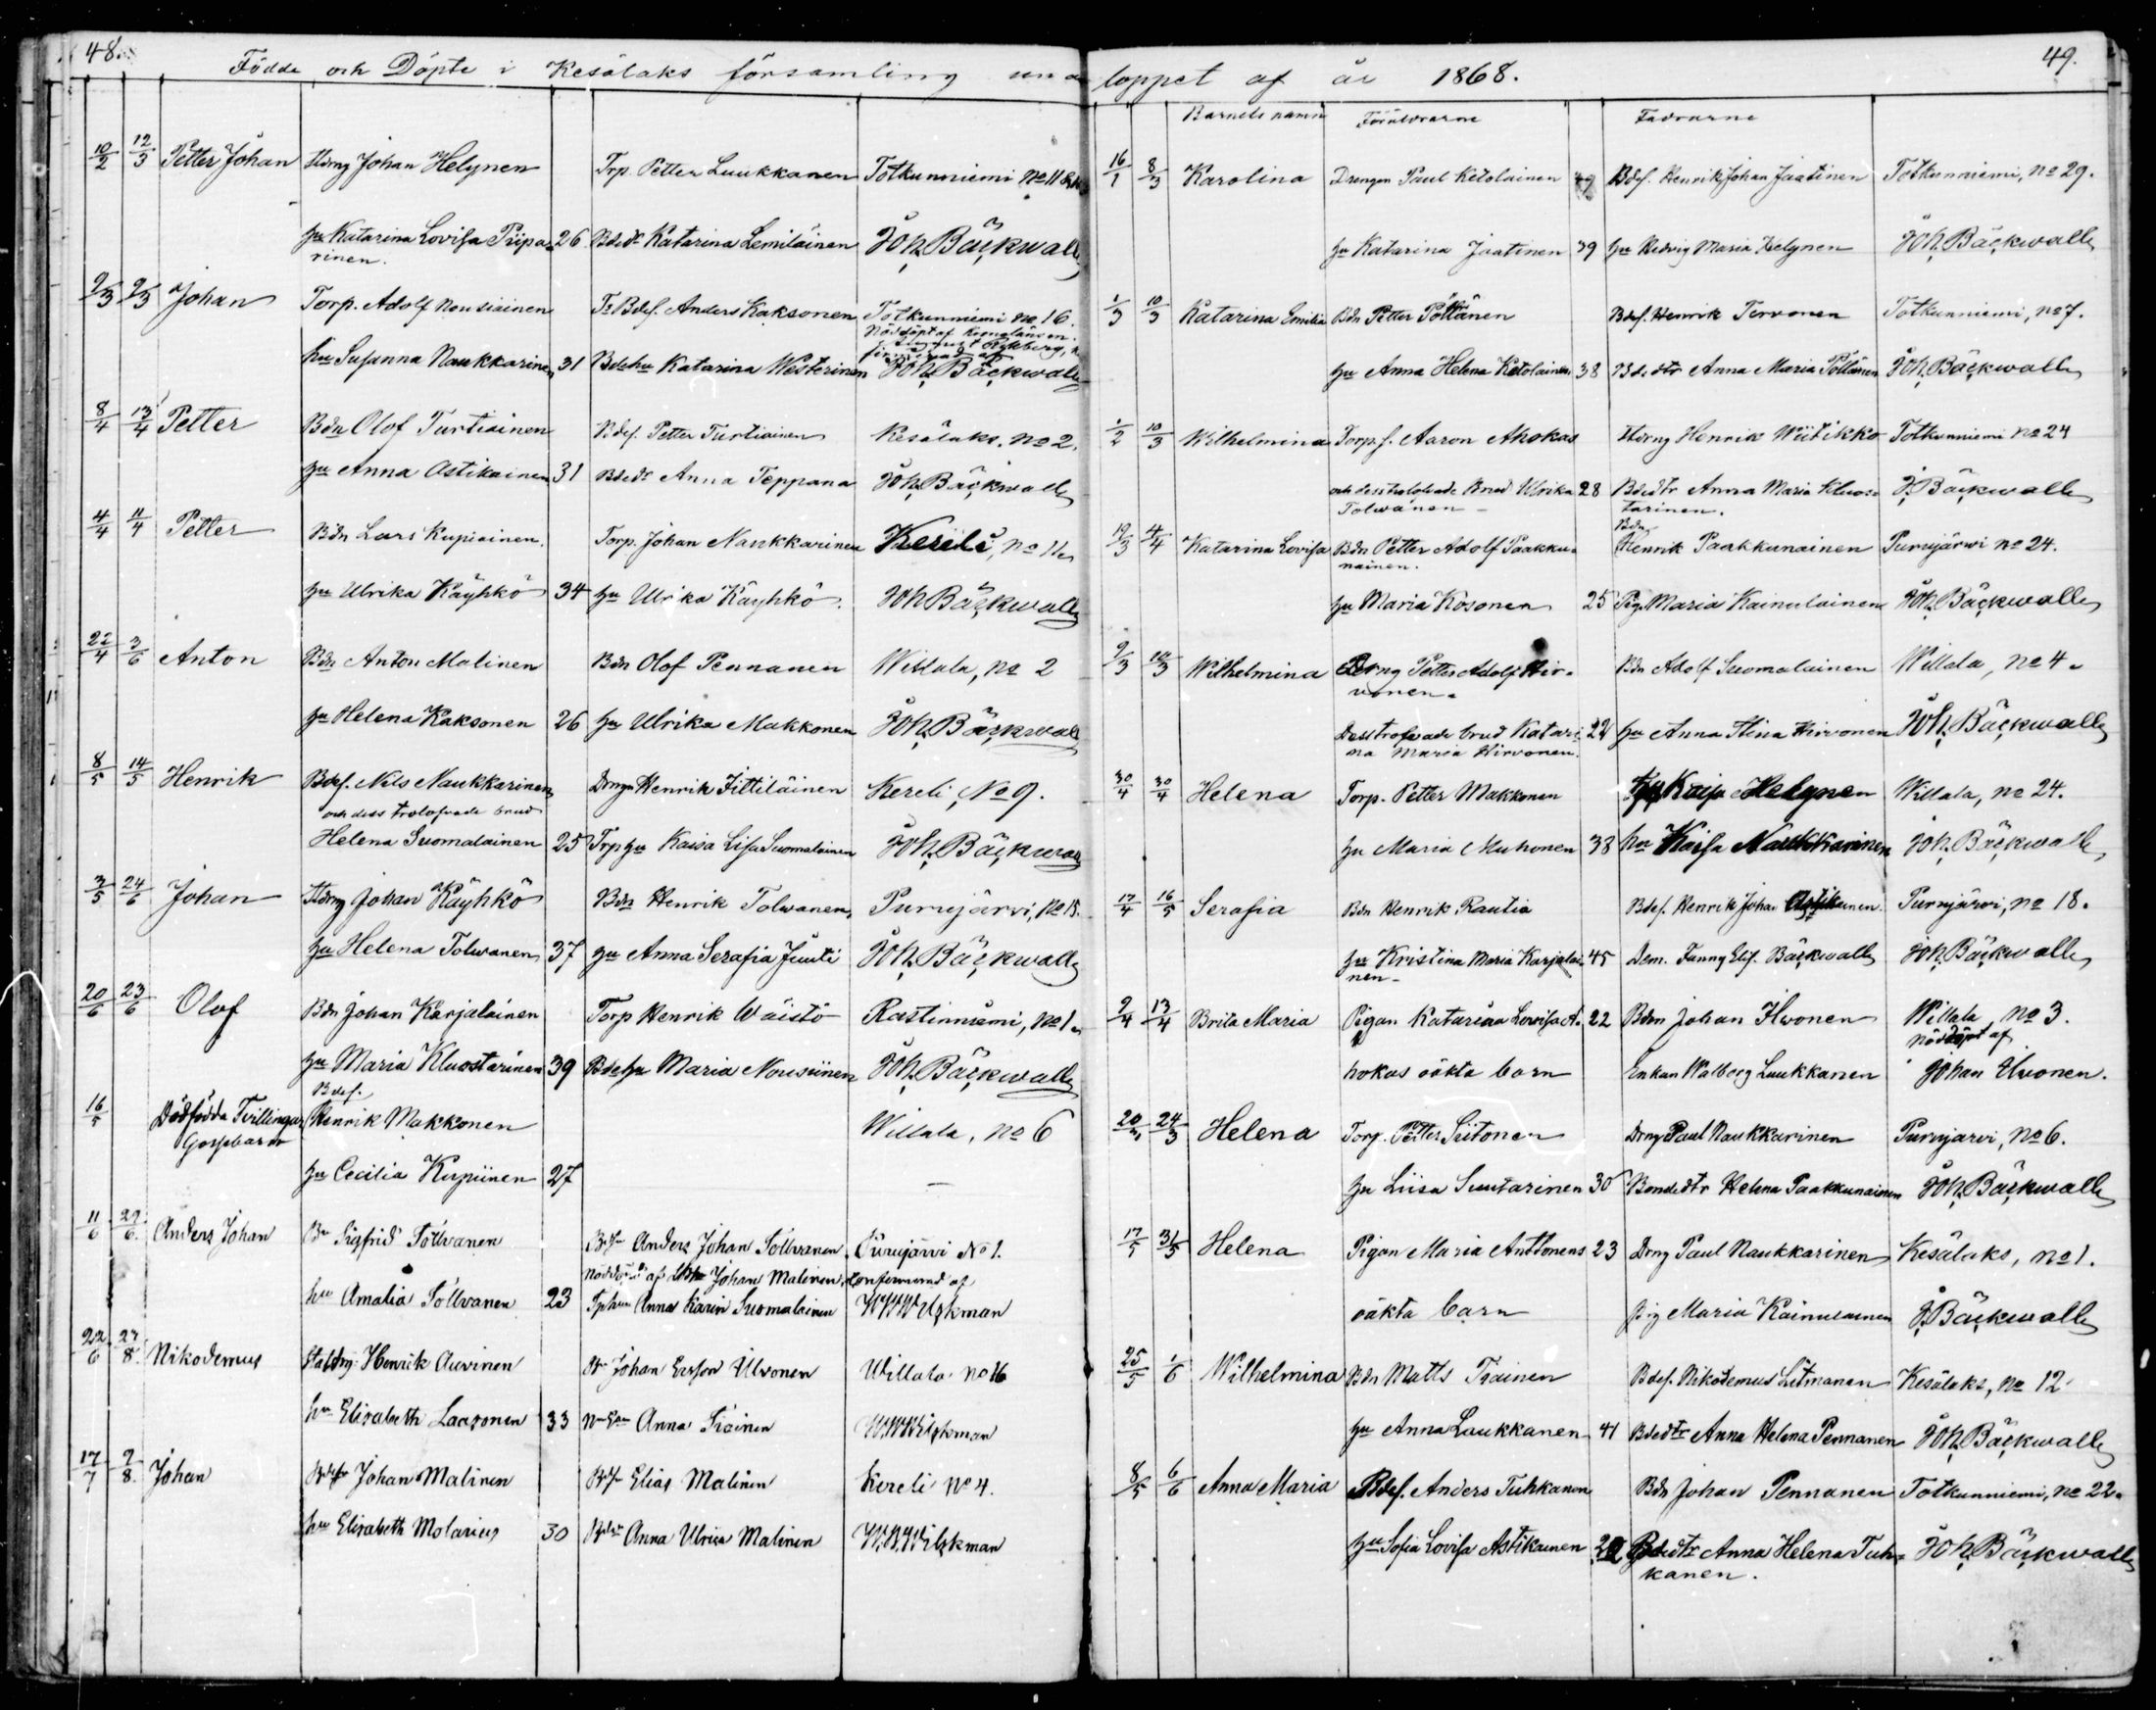 48.
Födde och Döpte i Kesälaks församling
10/2 12/3 Petter Johan Stdrng Johan Helynen Trp. Petter Luukkanen Totkunniemi No 11
hu Katarina Lovisa Piipa- 26 Bdedr Katarina Lemiläinen Joh. Bäckwall
rinen.
9/3 9/3 Johan Torp. Adolf Nousiainen Bdes. Anders Kaksonen Totkunniemi no 16.
Nöddöpt af
hu Susanna Naukkarinen 31 Bdehu Katarina Westerinen Joh. Bäckwall
8/4 13/4 Petter Bdn Olof Turtiainen Bdes. Petter Turtiainen Kesälaks. no 2.
hu Anna Astikainen 31 Bdedr Anna Teppana Joh. Bäckwall
4/4 11/4 Petter Bdn Lars Kupiainen. Torp. Johan Naukkarinen Kereli, no 11.
hu Ulrika Käyhkö 34 hu Ulrika Käyhkö. Joh Bäckwall
22/4 3/6 Anton Bdn Anton Malinen Bdn Olof Pennanen Willala, no 2
hu Helena Kaksonen 26 hu Ulrika Makkonen Joh. Bäckwall
8/5 14/5 Henrik Bdes. Nils Naukkarinen Drng Henrik Tittiläinen Kereli, No 9.
och dess trolofvade brud
Helena Suomalainen 25 Trp hu Kaisa Lisa Suomalainen Joh. Bäckwall
3/5 24/6 Johan Stdrng Johan Käyhkö Bdn Henrik Tolwanen Purujärvi, No 15.
hu Helena Tolwanen 37 hu Anna Serafia Juuti Joh. Bäckwall
20/6 23/6 Olof Bdn Johan Karjalainen Torp Henrik Wäistö Rastinniemi, no 1.
hu Maria Kluostarinen 39 Bdehu Maria Nousiinen Joh. Bäckwall
Bdes.
16/5 Dödfödda Tvillingar Henrik Makkonen Willala, no 6
Gossebarn
hu Cecilia Kupiinen 27 —
11/6 29/6. Anders Johan Bn Sigfrid Sollvanen Bdsn Anders Johan Sollvanen Purujärvi No 1.
Nöddöpt af Johan Malinen, Confirmerad af
hu Amalia Sollvanen 23 Tphun Anna Karin Suomalainen W.W. Wilskman
22/6 27/8. Nikodemus Staldrg Henrik Auvinen Bn Johan Ersson Ulvonen Willala no 16
hu Elisabeth Laasonen 33 Anna Tiainen W.W. Wilskman
17/7 9/8. Johan Bdesn Johan Malinen Bdsn Elias Malinen Kereli No 4.
hu Elisabeth Molarius 30 Bdedr Anna Ulrica Malinen W.W. Wilskman
49.
loppet af år 1868.
Barnets namn Föräldrarne Faddrarne
16/1 8/3 Karolina Drengen Paul Ketolainen Bdes. Henrik Johan Jaatinen Totkunniemi, no 29.
hu Katarina Jaatinen 39 hu Hedvig Maria Helynen Joh. Bäckwall
1/3 10/3 Katarina Emilia Bdn Petter Pöllänen Bdes. Henrik Tervonen Totkunniemi, no 7.
hu Anna Helena Ketolainen 38 Bdedtr Anna Maria Pöllänen Joh. Bäckwall
1/2 10/3 Wilhelmina Torp.s. Aaron Ahokas Stdrng Henrik Wiitikko Totkunniemi no 24
och dess trolofvade brud Ulrika 28 Bdedtr Anna Maria Kluos- J. Bäckwall
Tolwanen — tarinen.
Bdn
19/3 4/4 Katarina Lovisa Bdn Petter Adolf Paakku- Henrik Paakkunainen Purujärwi no 24.
nainen.
hu Maria Kosonen 25 Pig. Maria Kainulainen Joh. Bäckwall
9/3 10/3 Wilhelmina Drng Petter Adolf Hir- Bdn Adolf Suomalainen Willala, no 4.
vonen.
Dess trolofvade brud Katari- 24 hu Anna Stina Hirvonen Joh. Bäckwall
na Maria Hirvonen.
30/4 30/4 Helena Torp. Petter Makkonen Kaisa Helynen Willala, no 24.
hu Maria Muhonen 38 hu Kaisa Naukkarinen Joh. Bäckwall
17/4 16/5 Serafia Bdn Henrik Rautia Bdes. Henrik Johan Astikainen. Purujärvi, no 18.
hu Kristina Maria Karjalai- 45 Dem. Fanny Elis. Bäckwall Joh Bäckwall
nen —
9/4 13/4 Brita Maria Pigan Katarina Lovisa A- 22 Bdn Johan Ilwonen Willala, no 3.
nöddöpt af
hokas oäkta barn Enkan Walborg Luukkanen Johan Ilvonen.
20/3 24/3 Helena Torp. Petter Siitonen Drng Paul Naukkarinen Purujarvi, No 6.
hu Liisa Suutarinen 30 Bondedtr Helena Paakkunainen Joh. Bäckwall
31/5 Helena Pigan Maria Anttonens 23 Drng Paul Naukkarinen Kesälaks, no 1.
oäkta barn Pig Maria Kainulainen J. Bäckwall
25/5 1/6 Wilhelmina Bdn Matts Tiainen Bdes. Nikodemus Litmanen Kesälaks, no 12
hu Anna Laukkanen 41 Bdedtr Anna Helena Pennanen Joh. Bäckwall
8/5 6/6 Anna Maria Bdes. Anders Tuhkanen Bdn Johan Pennanen Totkunniemi, no 22.
hu Sofia Lovisa Astikainen Bdedtr Anna Helena Tuh- Joh. Bäckwall
kanen.